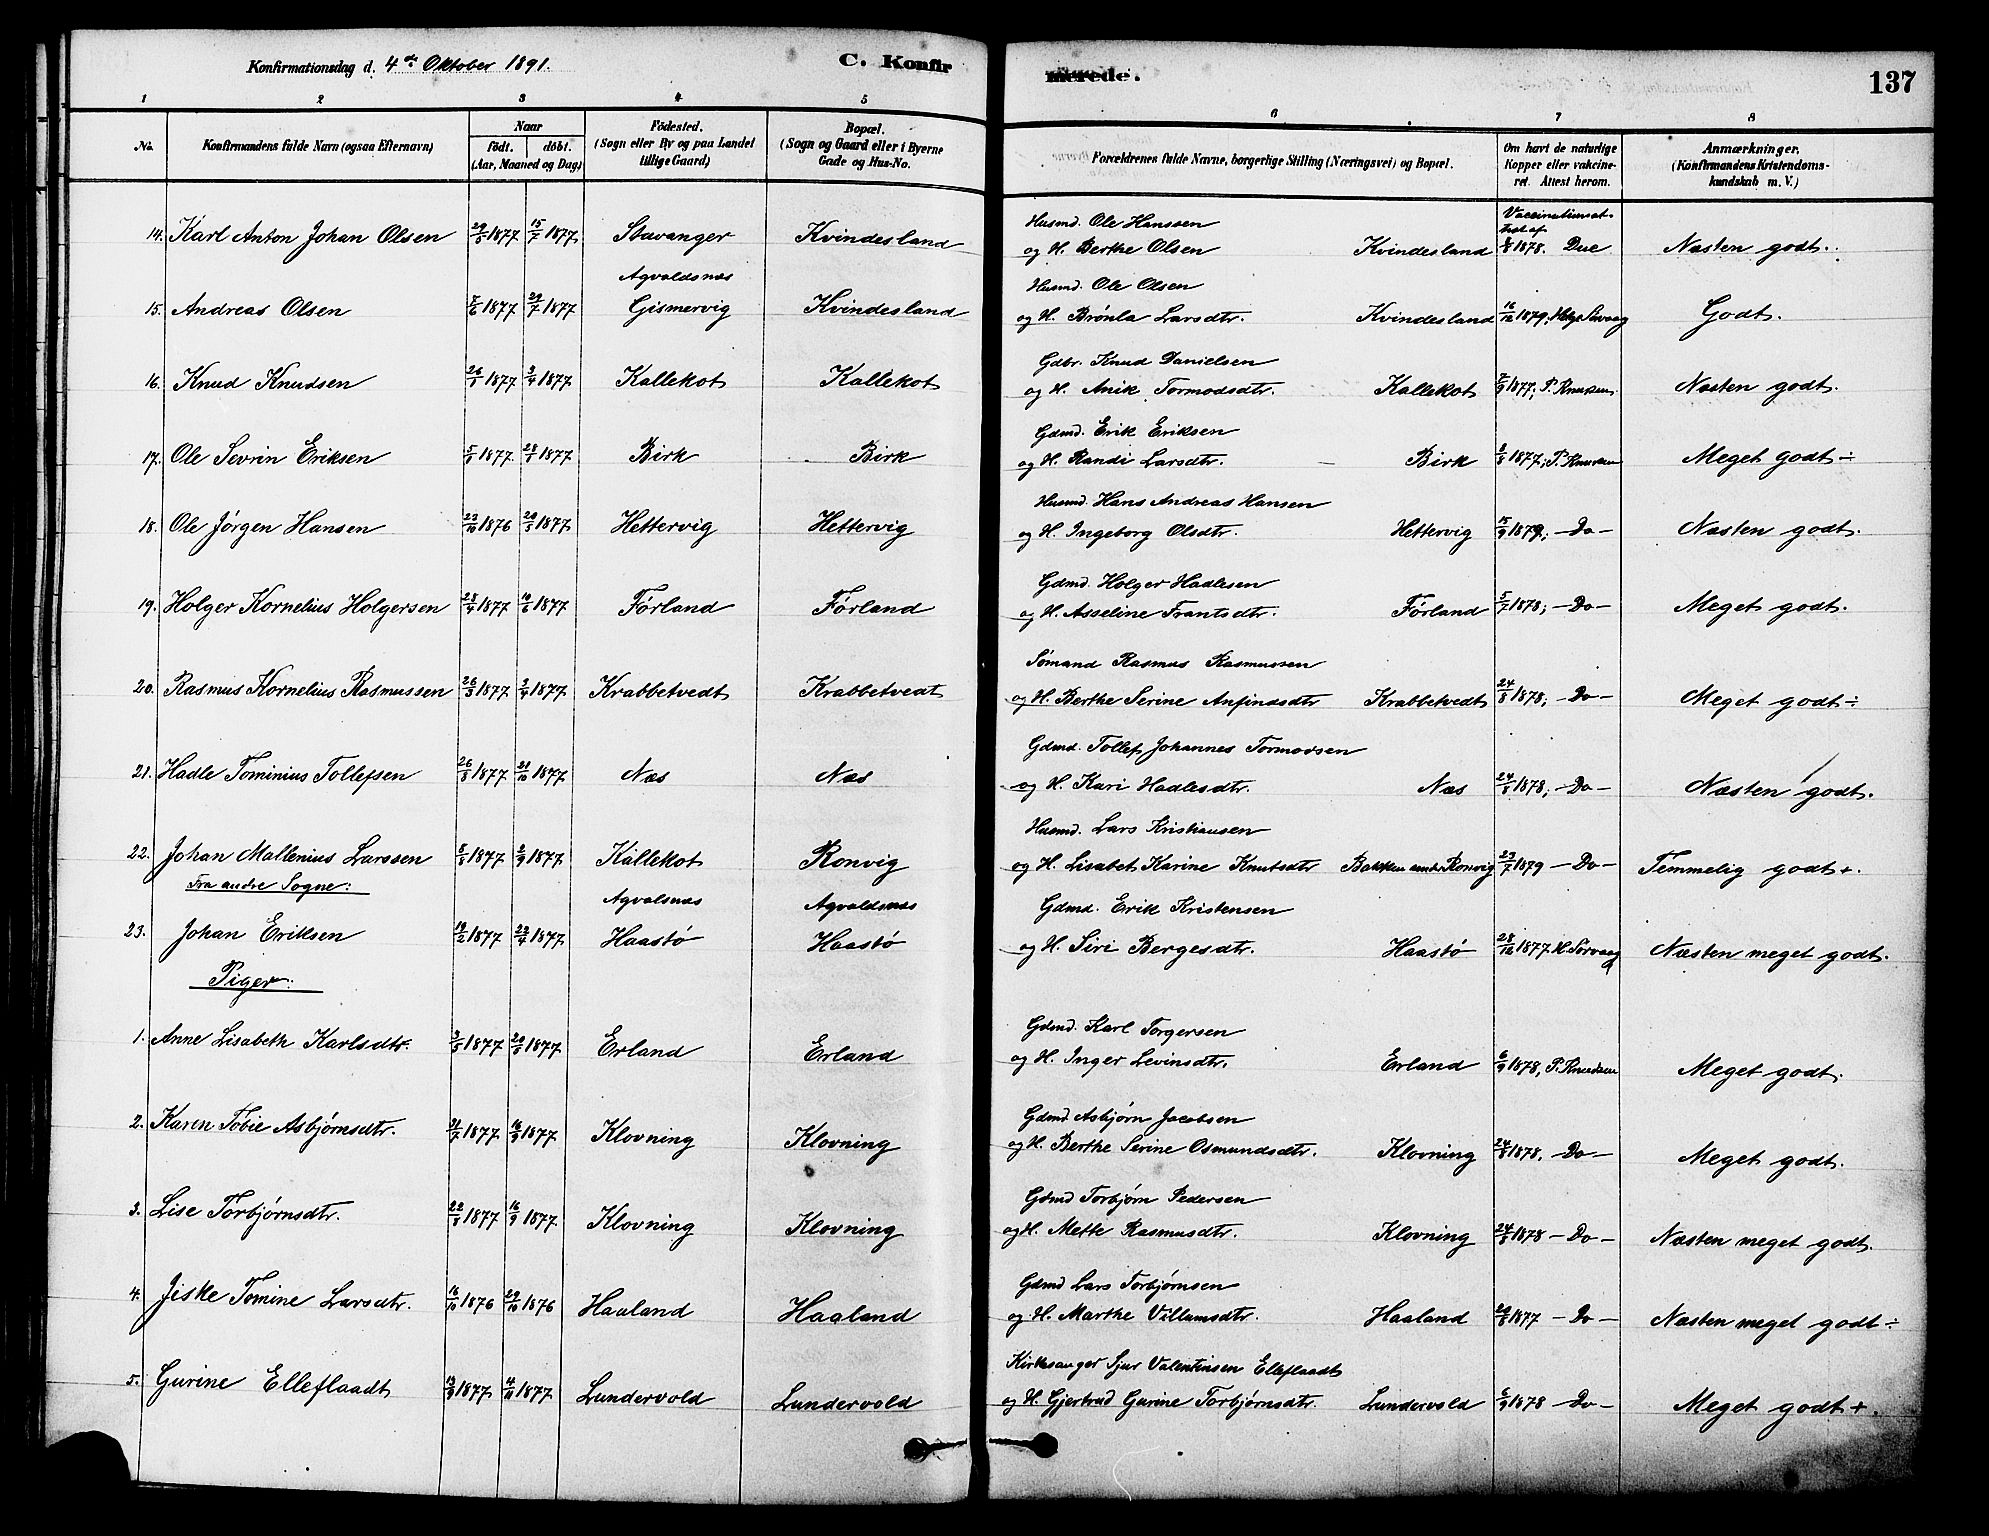 Konfirmationsdag d. 4de Oktober 1891.
C. Konfirmerede.
137
1 2 3 4 5 6 7 8
No.
Konfirmandens fulde Navn (ogsaa Efternavn)
Naar
födt. döbt.
(Aar, Maaned og Dag)
Födested.
(Sogn eller By og paa Landet tillige Gaard)
Bopæl.
(Sogn og Gaard eller i Byerne Gade og Hus-No.
Forældrenes fulde Navne, borgerlige Stilling (Næringsvei) og Bopæl.
Om havt de naturlige Kopper eller vakcineret. Attest herom.
Anmærkninger.
(Konfirmandens Kristendomskundskab m. V.)
14. Karl Anton Johan Olsen 29/5 1877 15/7 1877 Stavanger Kvindesland
Husmd. Ole Hanssen
og H. Berthe Olsen Kvindesland Vaccinationsattest af 1878. Due Næsten godt.
15. Andreas Olsen 7/6 1877 29/7 1877 Agvaldsnæs Gismervig Kvindesland
Husmd. Ole Olsen
og H. Brönla Larsdtr. Kvindesland 16/12 1879, Helge Sørvaag Godt.
16. Knud Knudsen 26/1 1877 2/4 1877 Kallekot Kallekot
Gdbr. Knud Danielsen
og H. Anik Tormodsdtr. Kallekot 7/9 1877; P. Knudsen Næsten godt.
17. Ole Sevrin Eriksen 5/1 1877 28/1 1877 Birk Birk
Gdmd. Erik Eriksen
og H. Randi Larsdtr. Birk 8/8 1877; P. Knudsen Meget godt ÷
18. Ole Jörgen Hansen 22/10 1876 20/5 1877 Hettervig Hettervig
Husmd. Hans Andreas Hansen
og H. Ingeborg Olsdtr. Hettervig 15/9 1879; -Do- Næsten godt.
19. Holger Kornelius Holgersen 28/4 1877 10/6 1877 Förland Förland
Gdmd. Holger Hadlesen
og H. Asseline Frantsdtr. Förland 5/7 1878; -Do- Meget godt.
20. Rasmus Kornelius Rasmussen 26/3 1877 2/4 1877 Krabbetvedt Krabbetvedt
Sömand Rasmus Rasmussen
og H. Berthe Serine Anfindsdtr Krabbetvedt 24/8 1878; -Do- Meget godt ÷
21. Hadle Tominius Tollefsen 26/8 1877 21/10 1877 Næs Næs
Gdmd. Tollef Johannes Tormodsen
og H. Kari Hadlesdtr. Næs 24/8 1878; -Do- Næsten godt.
22. Johan Mallenius Larssen 8/8 1877 2/9 1877 Kallekot Ronvig
Husmd. Lars Kristiansen
og H. Lisabet Karine Knutsdtr Bakken under Ronvig 23/7 1879 -Do- Temmelig godt +.
Fra andre Sogne:
23. Johan Eriksen 19/2 1877 22/4 1877 Agvalsnæs Haastö Agvaldsnæs Haastö
Gdmd. Erik Kristensen
og H. Siri Bergesdtr. Haastö 28/12 1877 H. Sørvaag Næsten meget godt.
Piger:
1. Anne Lisabeth Karlsdtr. 3/5 1877 20/5 1877 Erland Erland
Gdmd. Karl Torgersen
og H. Inger Levinsdtr. Erland 6/9 1878, P. Knudsen Meget godt.
2. Karen Tobie Asbjørnsdtr. 31/7 1877 16/9 1877 Klovning Klovning
Gdmd Asbjørn Jacobsen
og H. Berthe Serine Osmundsdtr. Klovning 24/8 1878, -Do- Meget godt.
3. Lise Torbjørnsdtr. 22/8 1877 16/9 1877 Klovning Klovning
Gdmd Torbjørn Pedersen
og H. Mette Rasmusdtr. Klovning 24/8 1878 -Do- Næsten meget godt.
4. Jiske Tomine Larsdtr. 16/10 1876 29/10 1876 Haaland Haaland
Gdmd Lars Torbjørnsen
og H. Marthe Villumsdtr. Haaland 1877 -Do- Næsten meget godt ÷
5. Gurine Elleflaadt 13/9 1877 4/11 1877 Lundervold Lundervold
Kirkesanger Sjur Valentinsen Elleflaadt
og H. Gjertrud Gurine Torbjørnsdtr. Lundervold 6/9 1878 -Do- Meget godt +.